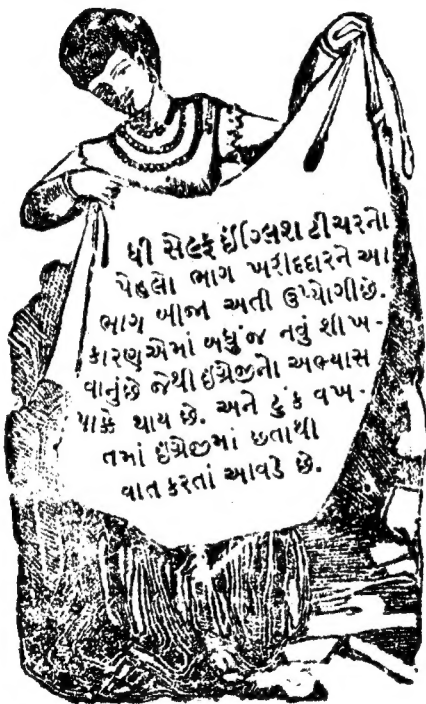 ધી સેલ્ફ ઈંગ્લિશ ટીચરનો
પેહલો ભાગ ખરીદદારને આ
ભાગ બીજો અતી ઉપ્યોગીછે.
કારણ એમાં બધું જ નવું શીખ-
વાનુંછે જેથી ઇંગ્રેજીનો અભ્યાસ
પાકો થાય છે. અને ટુંક વખ-
તમાં ઇંગ્રેજીમાં છતાથી
વાત કરતાં આવડે છે.